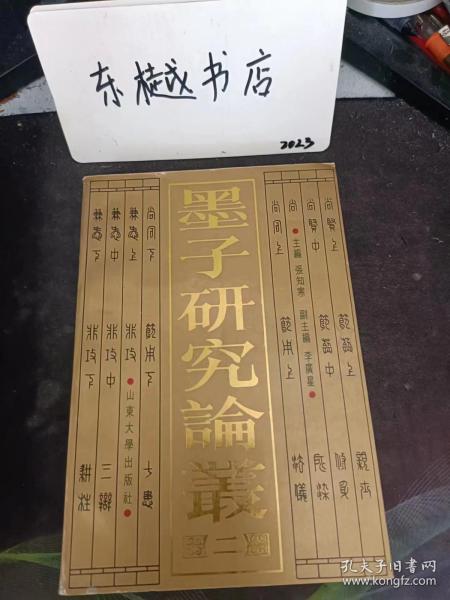 东樾书店
2023
墨子研究論叢
二
主編 張知寒 副主編 李廣星
山東大學出版社
親士
修身
所染
法儀
七患
三辯
耕柱
尚賢上
尚賢中
尚同上
尚同下
兼愛上
兼愛中
兼愛下
節葬上
節葬中
節用上
節用下
非攻
非攻中
非攻下
孔夫子旧书网
www.kongfz.com